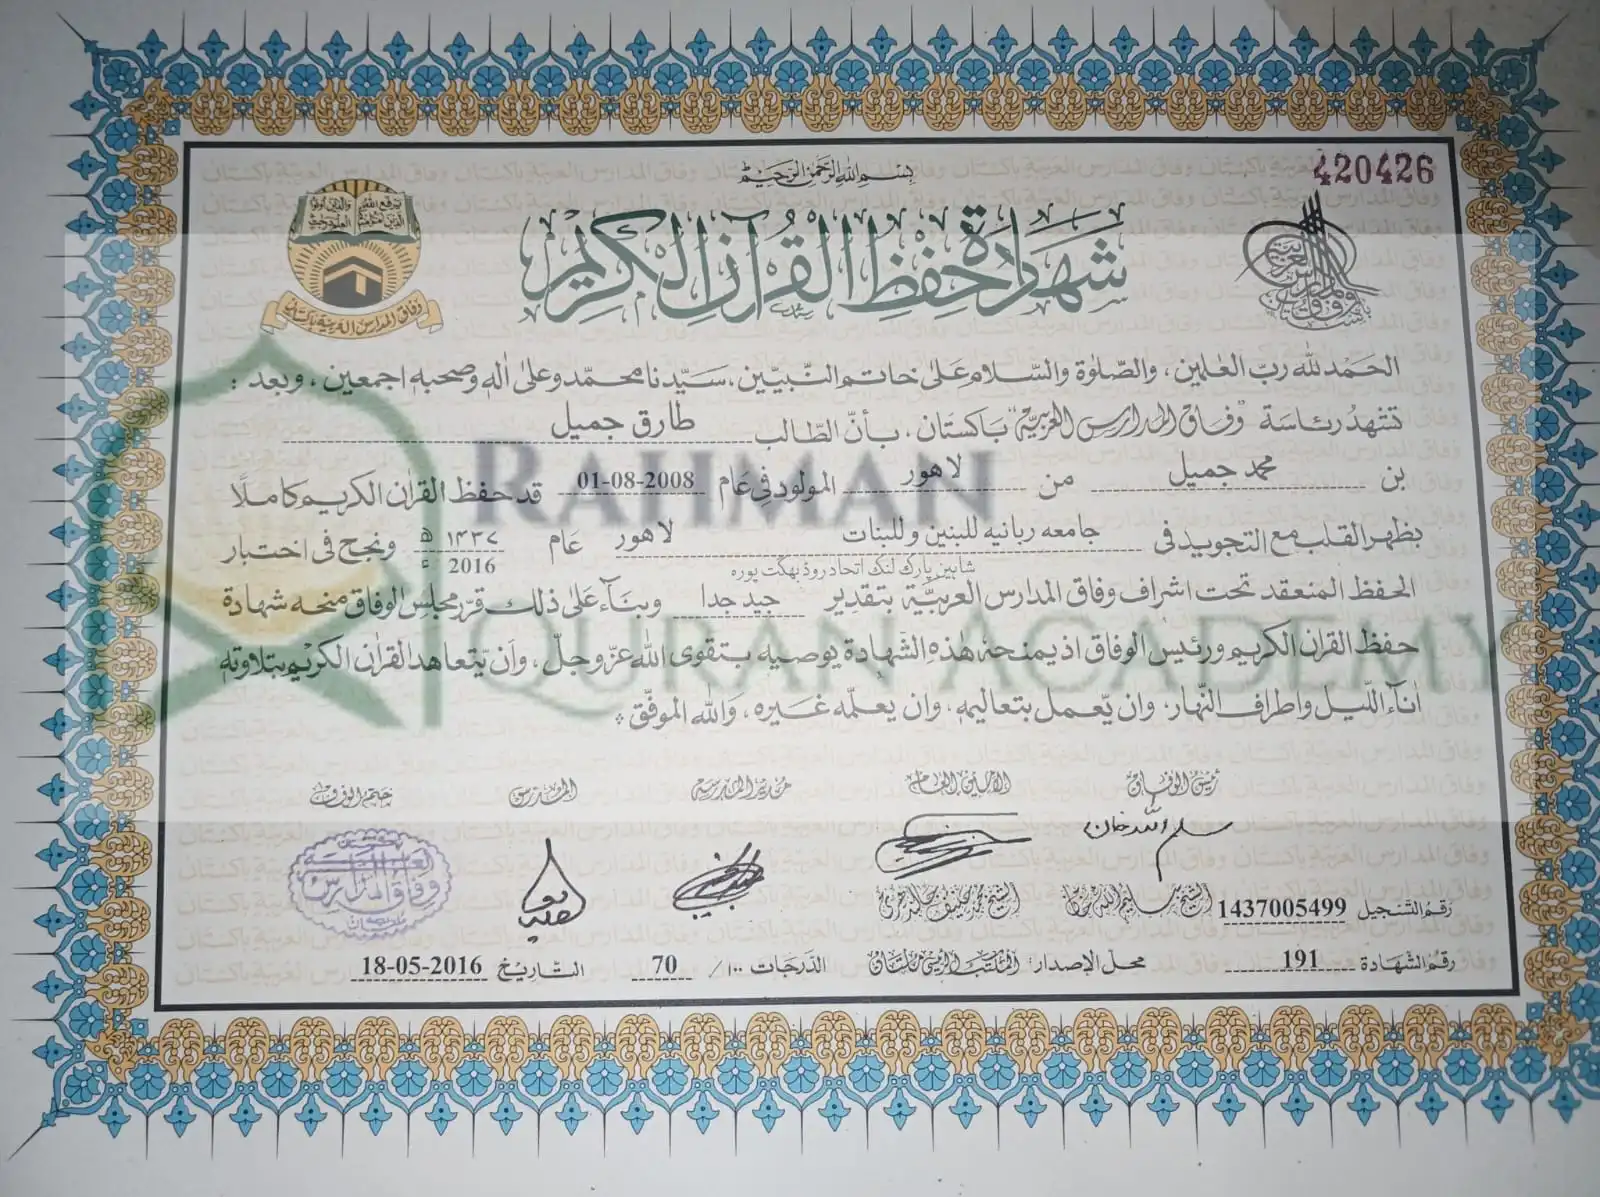 بسم الله الرحمن الرحيم
420426
يرفع الله الذين آمنوا والذين أوتوا العلم درجات
وفاق المدارس العربية باكستان
شهادة حفظ القرآن الكريم
وفاق المدارس العربية باكستان
الحمد لله رب العٰلمين، والصّلوٰة والسّلام علىٰ خاتم النّبيّين، سيّدنا محمّد وعلىٰ اٰله وصحبه اجمعين، وبعد:
تشهد رئاسة "وفاق المدارس العربيّة" باكستان، بأنّ الطّالب طارق جميل
بن محمد جميل من لاهور المولود في عام 01-08-2008 قد حفظ القرآن الكريم كاملًا
بظهر القلب مع التجويد في جامعه ربانيه للبنين وللبنات لاهور عام ١٤٣٧ھ 2016ء ونجح في اختبار
شاہین پارک لنک اتحاد روڈ بھگت پورہ
الحفظ المنعقد تحت اشراف وفاق المدارس العربيّة بتقدير جيد جدا وبناءً علىٰ ذلك قرّر مجلس الوفاق منحه شهادة
حفظ القراٰن الكريم ورئيس الوفاق اذ يمنحه هٰذه الشّهادة يوصيه بتقوى الله عزّوجلّ، وأن يّتعاهد القراٰن الكريم بتلاوته
اٰناء اللّيل واطراف النّهار، وان يّعمل بتعاليمه، وان يعلّمه غيره، والله الموفّق
RAHMAN
QURAN ACADEMY
رئيس الوفاق الأمين العام مدير المدرسة المدرس ختم الوفاق
سليم الله خان
الشيخ سليم الله خان الشيخ محمد حنيف جالندهري
رقم التّسجيل 1437005499
رقم الشّهادة 191 محل الإصدار: المكتب الرئيسي ملتان الدرجات ١٠٠/ 70 التّاريخ 18-05-2016